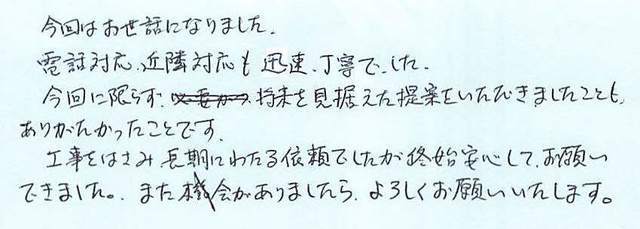 今回はお世話になりました。
電話対応、近隣対応も迅速、丁寧でした。
今回に限らず、将来を見据えた提案をいただきましたことも、
ありがたかったことです。
工事をはさみ長期にわたる依頼でしたが終始安心して、お願い
できました。また機会がありましたら、よろしくお願いいたします。